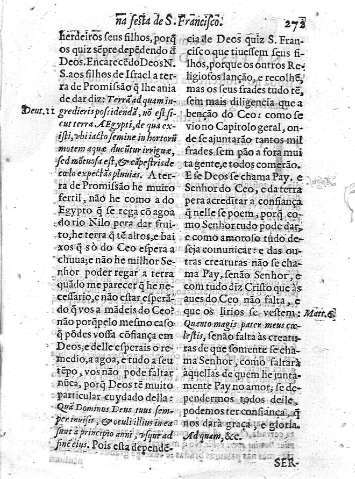 na festa de S. Francisco. 272
herdeiros seus filhos, porq̃
os quiz sẽpre dependẽdo d̃
Deos. Encarece do Deos N.
S. aos filhos de Israel a ter-
ra de Promissão q̃ lhe auia
de dar diz: Terra ad quam in-
Deut. 11
gredieris possidendã, nõ est si-
cut terra Ægypti, de qua exi-
sti, vbi iacto semine in hortorũ
morem aquæ ducitur irriguæ,
sed mõtuosa est, & cãpestris de
cælo expectãs pluuias. A ter-
ra de Promissão he muito
fertil, não he como a do
Egypto q̃ se rega cõ agoa
do rio Nilo pera dar frui-
to, he terra q̃ tẽ altos, e bai
xos q̃ só do Ceo espera a
chuua; e não he milhor Se-
nhor poder regar a terra
quãdo me parecer q̃ he ne-
cessario, e não estar esperã-
do q̃ vos a mãdeis do Ceo?
não porq̃ pelo mesmo caso
q̃ põdes vossa cõfiança em
Deos, e delle esperais o re-
medio, a agoa, e tudo a seu
tẽpo, vos não pode faltar
nũca, porq̃ Deos tẽ muito
particular cuydado della:
Quã Dominus Deus tuus sem-
per inuisit, & oculi illius in ea
sunt à principio anni, vsque ad
finẽ eius. Pois esta depẽdẽ-
cia de Deos quiz S. Fran-
cisco que tiuessem seus fi-
lhos, porque os outros Re-
ligiosos lanção, e recolhẽ,
mas os seus frades tudo tẽ,
sem mais diligencia que a
benção do Ceo: como se
vio no Capitolo geral, on-
de se ajuntarão tantos mil
frades sem pão a fora mui
ta gente, e todos comerão.
E se Deos se chama Pay, e
Senhor do Ceo, e da terra
pera acreditar a confiança
q̃ nelle se poem, porq̃ co-
mo Senhor tudo pode dar,
e como amoroso tudo de-
seja comunicar: e das ou-
tras creaturas não se cha-
ma Pay, senão Senhor, e
com tudo diz Cristo que às
aues do Ceo não falta, e
que os lirios se vestem:
Matt. 6
Quanto magis pater meus cœ-
lestis, senão falta às creatu-
ras de que somente se cha-
ma Senhor, como faltará
àquellas de quem he junta-
mente Pay no amor, se de-
pendermos todos delle,
podemos ter confiança, q̃
nos dará graça, e gloria.
Ad quam, &c.
SER-